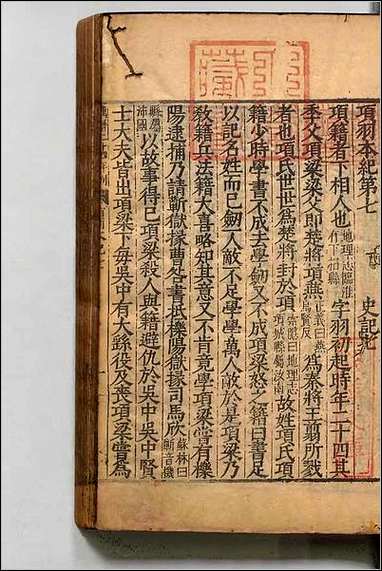 項羽本紀第七 史記七
項籍者下相人也地理志臨淮有下相縣字羽初起時年二十四其
季父項梁梁父即楚將項燕爲秦將王翦所戮
者也項氏世世爲楚將封於項故姓項氏項
籍少時學書不成去學劒又不成項梁怒之籍曰書足
以記名姓而已劒一人敵不足學學萬人敵於是項梁乃
教籍兵法籍大喜略知其意又不肯竟學項梁嘗有櫟
陽逮捕乃請蘄獄掾曹咎書抵櫟陽獄掾司馬欣蘇林曰蘄音機
縣屬沛國以故事得已項梁殺人與籍避仇於吳中吳中賢
士大夫皆出項梁下每吳中有大繇役及喪項梁嘗爲